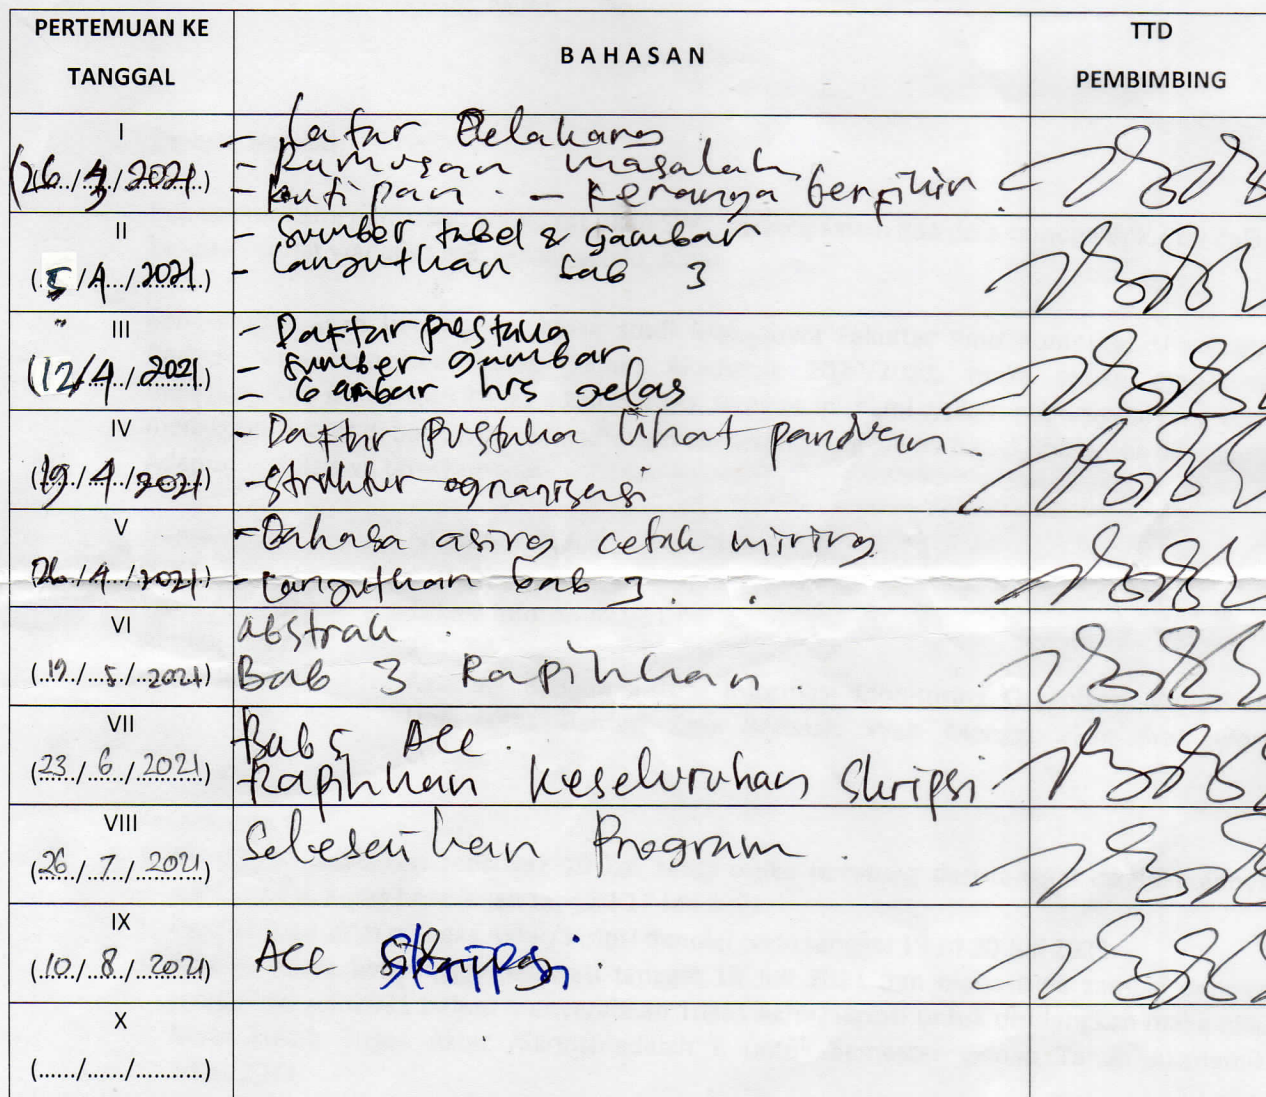 PERTEMUAN KE
TANGGAL
BAHASAN
TTD
PEMBIMBING
I
(26/3/2021)
- Latar Belakang
- Rumusan masalah
- kutipan - Keranga berfikir
II
(5/4/2021)
- Sumber tabel & gambar
- Lanjutkan bab 3
III
(12/4/2021)
- Daftar pustaka
- Sumber gambar
- Gambar hrs jelas
IV
(19/4/2021)
- Daftar pustaka lihat panduan
- Struktur ognanisasi
V
(26/4/2021)
- Bahasa asing cetak miring
- Lanjutkan bab 3.
VI
(19/5/2021)
abstrak
Bab 3 Rapihkan
VII
(23/6/2021)
Bab 5 Acc.
Rapihkan Keseluruhan Skripsi
VIII
(26/7/2021)
Selesaikan Program.
IX
(10/8/2021)
Acc Skripsi.
X
(....../....../...........)